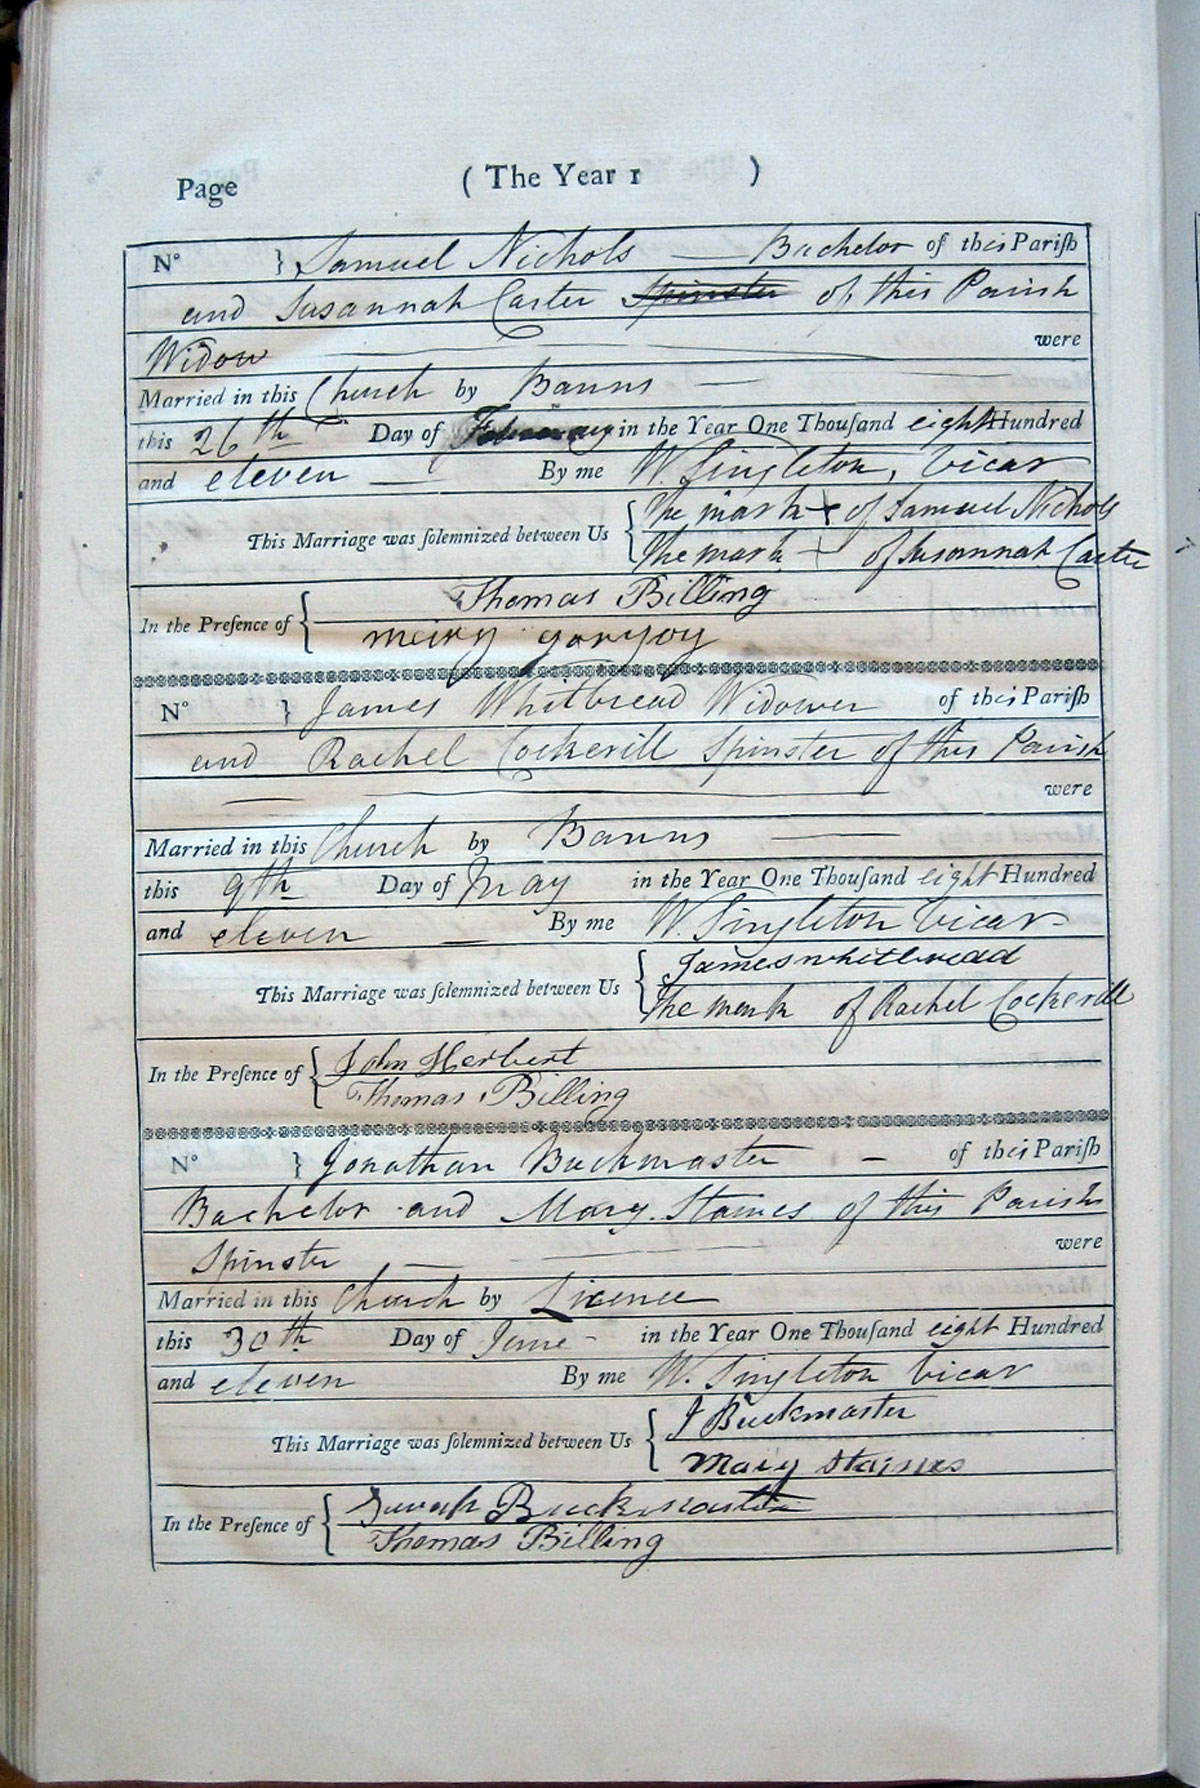 Page ( The Year 1 )
N° } Samuel Nichols — Bachelor of this Pariſh
and Susannah Carter Spinster of this Parish
Widow were
Married in this Church by Banns —
this 26th Day of February in the Year One Thouſand eight Hundred
and eleven — By me W. Singleton, Vicar
The mark + of Samuel Nichols
This Marriage was ſolemnized between Us {
The mark + of Susannah Carter
Thomas Billing
In the Preſence of {
meiry
N° } James Whitbread Widower of this Pariſh
and Rachel Cockerill Spinster of this Parish
— were
Married in this Church by Banns —
this 9th Day of May in the Year One Thouſand eight Hundred
and eleven — By me W. Singleton Vicar
James whitbread
This Marriage was ſolemnized between Us {
The mark of Rachel Cockerill
John Herbert
In the Preſence of {
Thomas Billing
N° } Jonathan Buckmaster — of this Pariſh
Bachelor and Mary Staines of this Parish
Spinster — were
Married in this Church by Licence
this 30th Day of June - in the Year One Thouſand eight Hundred
and eleven By me W. Singleton Vicar
J Buckmaster
This Marriage was ſolemnized between Us {
Mary Staines
Sarah Buckmaster
In the Preſence of {
Thomas Billing